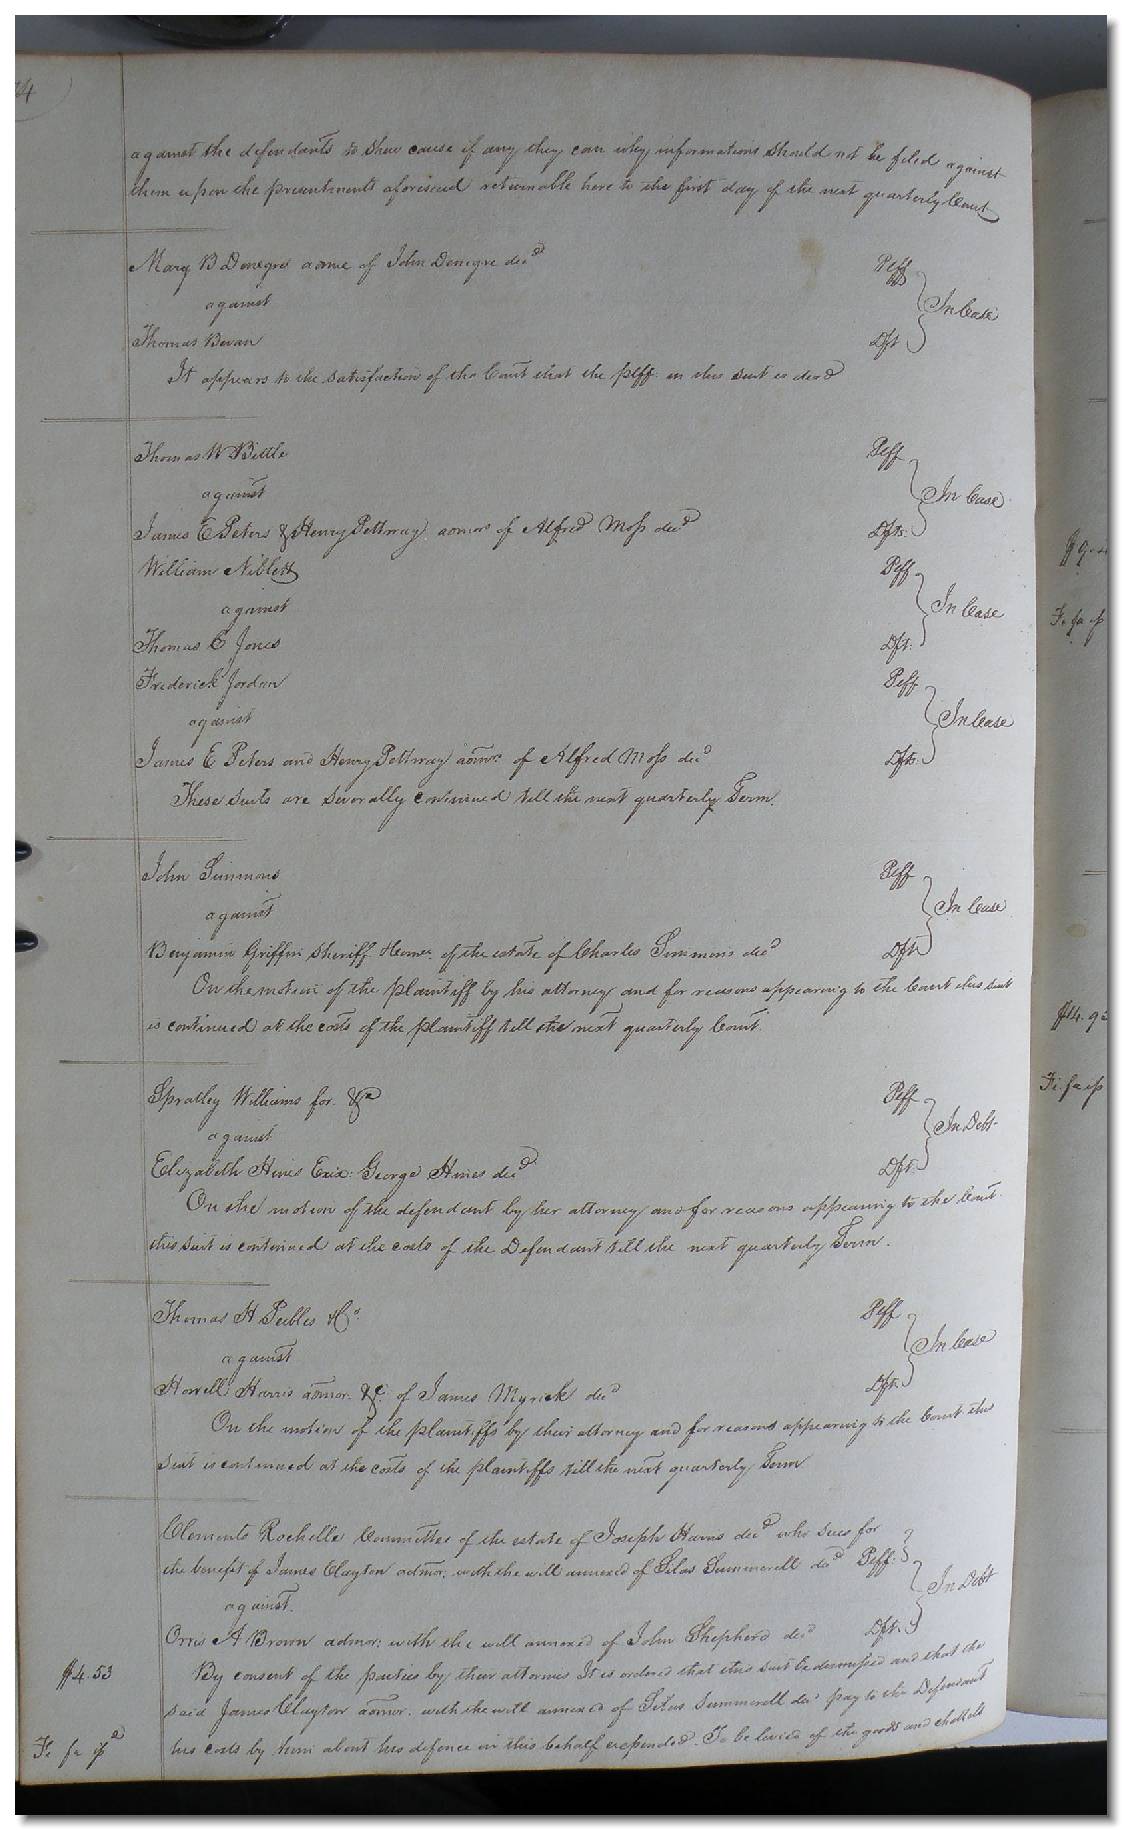 4
against the defendants to shew cause if any they can why informations should not be filed against
them upon the presentments aforesaid returnable here to the first day of the next quarterly Court
Mary B Denegre admx of John Denegre decd Plff
against In Case
Thomas Bevan Dft
It appears to the satisfaction of the Court that the plff. in this suit is dead
Thomas W Bettle Plff
against In Case
James E Peters & Henry Pettway admors of Alfred Moss decd Dfts.
William Niblett Plff
against In Case
Thomas E Jones Dft.
Frederick Jordan Plff
against In Case
James E Peters and Henry Pettway admors of Alfred Moss decd Dfts.
These suits are severally continued till the next quarterly Term.
John Simmons Plff
against In Case
Benjamin Griffin Sheriff of the estate of Charles Simmons decd Dft
On the motion of the plaintiff by his attorney and for reasons appearing to the Court this suit
is continued at the costs of the plaintiff till the next quarterly Court.
Spratley Williams for &c Plff
against In Debt
Elizabeth Hines Exix. George Hines decd Dft.
On the motion of the defendant by her attorney and for reasons appearing to the Court
this suit is continued at the costs of the Defendant till the next quarterly Term.
Thomas H Peebles & Co. Plff
against In Case
Howell Harris admor. &c. of James Myrick decd Dft.
On the motion of the plaintiffs by their attorney and for reasons appearing to the Court this
suit is continued at the costs of the plaintiffs till the next quarterly Term
Clements Rochelle Committee of the estate of Joseph decd who sues for
the benefit of James Clayton admor. with the will annexed of Silas Summerell decd Plff.
against. In Debt
Orris A Brown admor: with the will annexed of John Shepherd decd Dft.
$4.53 By consent of the parties by their attornies It is ordered that this suit be dismissed and that the
said James Clayton admor. with the will annexed of Silas Summerell decd pay to the Defendant
Fi fa ipd his costs by him about his defence in this behalf expended. To be levied of the goods and chattels
$9.
Fi. fa ip
$14.92
Fi. fa ip